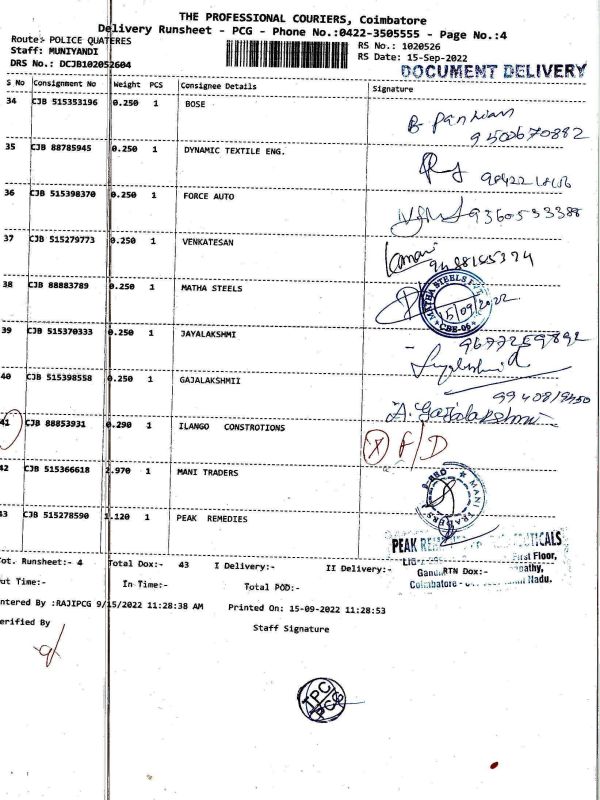 THE PROFESSIONAL COURIERS, Coimbatore
Delivery Runsheet - PCG - Phone No.:0422-3505555 - Page No.:4
Route:- POLICE QUATERES
RS No.: 1020526
Staff: MUNIYANDI
RS Date: 15-Sep-2022
DRS No.: DCJB102052604
DOCUMENT DELIVERY
S No Consignment No Weight PCS Consignee Details Signature
34 CJB 515353196 0.250 1 BOSE
B. Pandian
9500670882
35 CJB 88785945 0.250 1 DYNAMIC TEXTILE ENG.
36 CJB 515398370 0.250 1 FORCE AUTO
9360533388
37 CJB 515279773 0.250 1 VENKATESAN
38 CJB 88883789 0.250 1 MATHA STEELS
MATHA STEELS
15/09/2022
39 CJB 515370333 0.250 1 JAYALAKSHMI
9677259892
40 CJB 515398558 0.250 1 GAJALAKSHMII
9940819450
A. Gajalakshmi
41 CJB 88853931 0.290 1 ILANGO CONSTROTIONS
X F/D
42 CJB 515366618 2.970 1 MANI TRADERS
MANI TRADERS
43 CJB 515278590 1.120 1 PEAK REMEDIES
PEAK
First Floor,
Tot. Runsheet:- 4 Total Dox:- 43 I Delivery:- II Delivery:- RTN Dox:-
Out Time:- In Time:- Total POD:-
Coimbatore - Tamil Nadu.
Entered By :RAJIPCG 9/15/2022 11:28:38 AM Printed On: 15-09-2022 11:28:53
Verified By
Staff Signature
TPC
PCG